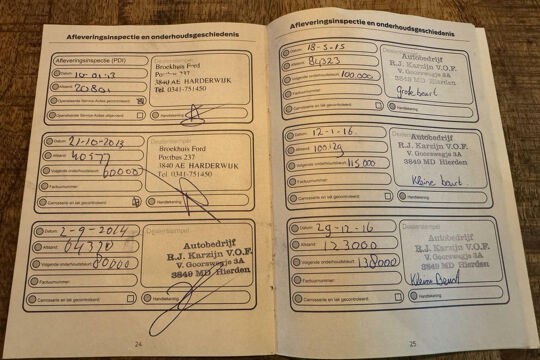 Afleveringsinspectie en onderhoudsgeschiedenis
Afleveringsinspectie (PDI)
Dealerstempel
Datum
Afstand
Openstaande Service Acties gecontroleerd
Openstaande Service Acties uitgevoerd
Handtekening
Broekhuis Ford
Portbus 237
3840 AE HARDERWIJK
Tel. 0341-751450
Datum 21-10-2013
Afstand 40577
Volgende onderhoudsbeurt 60000
Factuurnummer
Carrosserie en lak gecontroleerd
Handtekening
Broekhuis Ford
Portbus 237
3840 AE HARDERWIJK
Tel. 0341-751450
Datum 2-9-2014
Afstand 64370
Volgende onderhoudsbeurt 80000
Factuurnummer
Carrosserie en lak gecontroleerd
Dealerstempel
Autobedrijf
R.J. Karzijn V.O.F.
V. Goorswegje 3A
3849 MD Hierden
Handtekening
24
Afleveringsinspectie en onderhoudsgeschiedenis
Datum 18-5-15
Afstand 84323
Volgende onderhoudsbeurt 100.000
Factuurnummer
Carrosserie en lak gecontroleerd
Autobedrijf
R.J. Karzijn V.O.F.
V. Goorswegje 3A
3849 MD Hierden
Grote beurt
Handtekening
Datum 12-1-16
Afstand
Volgende onderhoudsbeurt 115000
Factuurnummer
Carrosserie en lak gecontroleerd
Autobedrijf
R.J. Karzijn V.O.F.
V. Goorswegje 3A
3849 MD Hierden
Kleine beurt
Handtekening
Datum 29-12-16
Afstand 123000
Volgende onderhoudsbeurt 138000
Factuurnummer
Carrosserie en lak gecontroleerd
Autobedrijf
R.J. Karzijn V.O.F.
V. Goorswegje 3A
3849 MD Hierden
Kleine Beurt
Handtekening
25